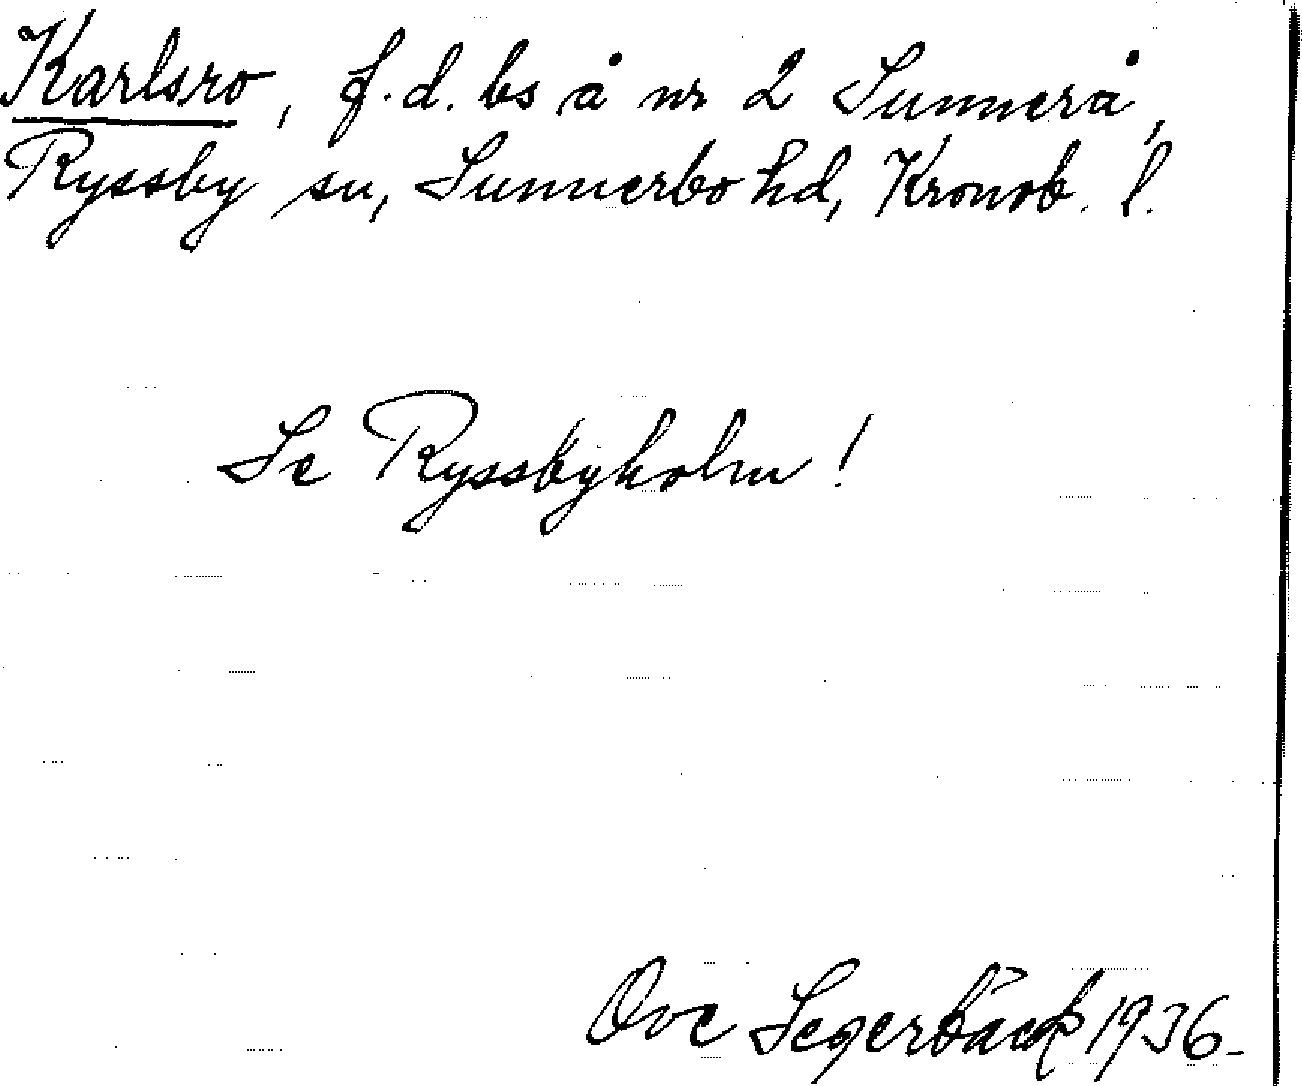 Karlsro, f.d. bs å nr 2 Sunnerå,
Ryssby sn, Sunnerbo hd, Kronob. l.
Se Ryssbyholm!
Ove Segerbäck 1936.